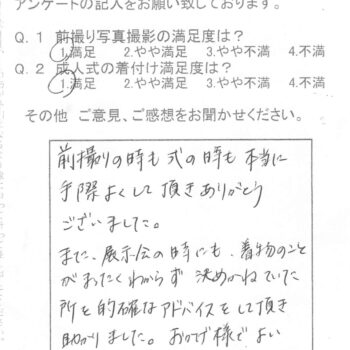 アンケートの記入をお願い致しております。
Q. 1 前撮り写真撮影の満足度は？
1.満足 2.やや満足 3.やや不満 4.不満
Q. 2 成人式の着付け満足度は？
1.満足 2.やや満足 3.やや不満 4.不満
その他 ご意見、ご感想をお聞かせください。
前撮りの時も 式の時も 本当に
手際よくして頂きありがとう
ございました。
また、展示会の時にも、着物のこと
がまったくわからず 決めかねていた
所を的確なアドバイスをして頂き
助かりました。おかげ様でよい